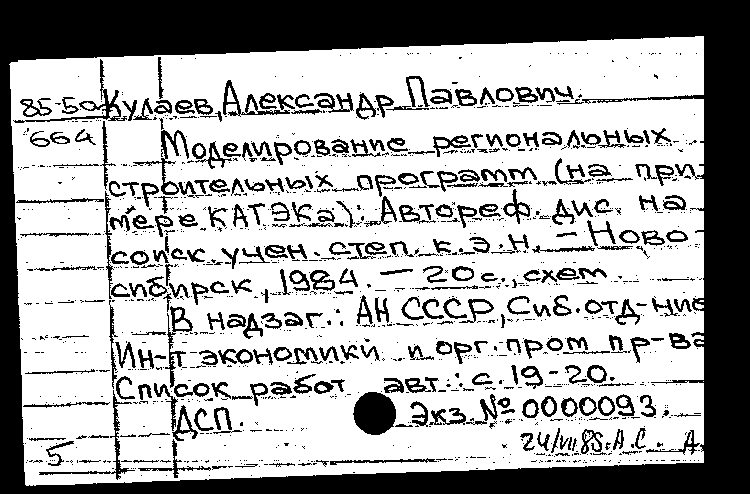 85-5а Кулаев, Александр Павлович.
664 Моделирование региональных
строительных программ (на при-
мере КАТЭКа): Автореф. дис. на
соиск. учен. степ. к. э. н. – Ново-
сибирск, 1984. – 20 с., схем.
В надзаг.: АН СССР, Сиб. отд-ние
Ин-т экономики и орг. пром пр-ва
Список работ авт.: с. 19-20.
ДСП. Экз № 0000093.
24/VII 85. А.С. А.
5